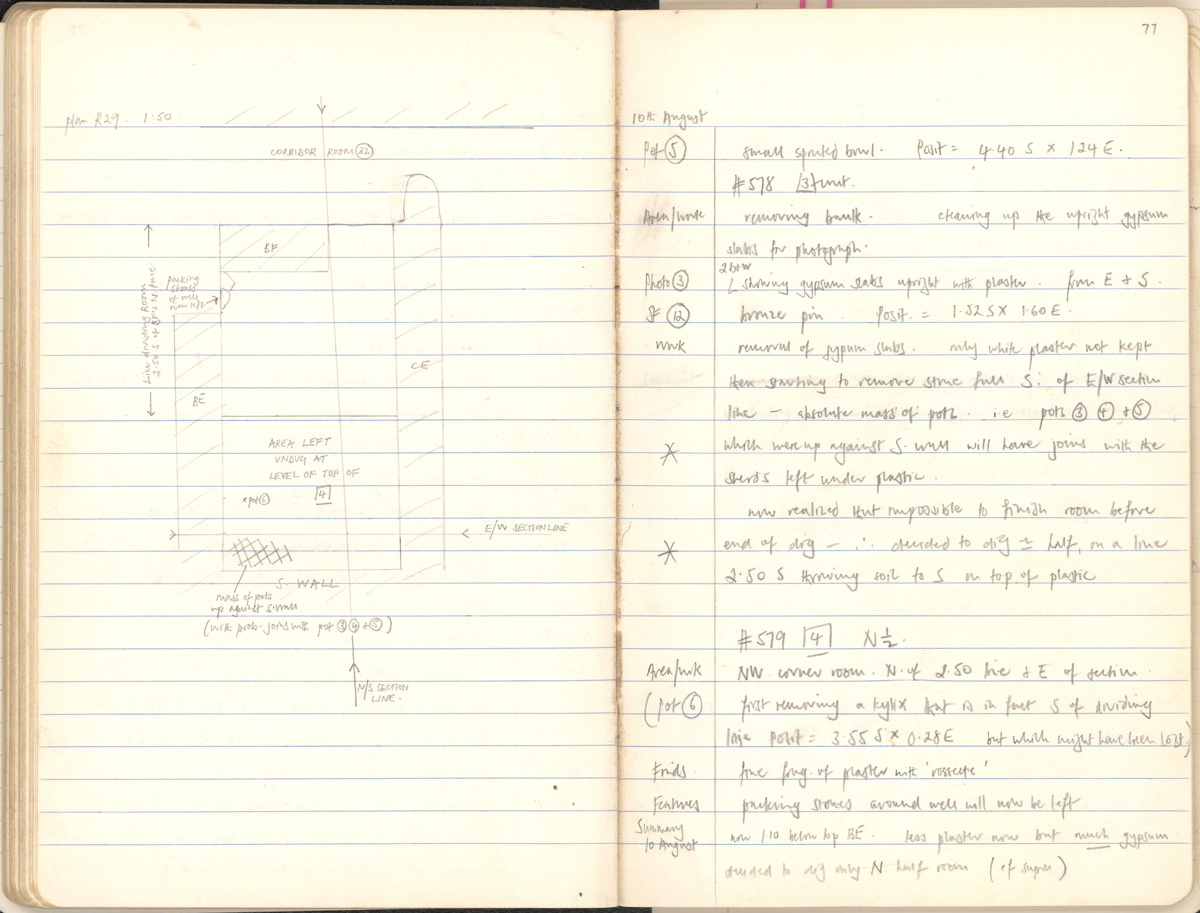 plan R29. 1:50
CORRIDOR ROOM 32
BF
packing
stones
of well
now left
Line dividing Room
2.50 S of BF's N. face.
CE
BE
AREA LEFT
UNDUG AT
LEVEL OF TOP OF
x pot 6 4
E/W SECTION LINE
S. WALL
mass of pots
up against S. wall
(with prob. joins with pot 3 4 + 5)
N/S SECTION
LINE.
77
10th August
Pot 5 small spouted bowl. Posit = 4.40 S x 1.24 E.
#578 3 / cont.
Area/work removing baulk. cleaning up the upright gypsum
slabs for photograph.
2 b+w
Photo 3 showing gypsum slabs upright with plaster. from E + S.
SF 12 bronze pin. Posit. = 1.52 S x 1.60 E.
Work removal of gypsum slabs. only white plaster not kept
then starting to remove stone fall S. of E/W section
line – absolute mass of pots. i.e pots 3 4 + 5
* which were up against S. wall will have joins with the
sherds left under plastic.
now realized that impossible to finish room before
* end of dig – ∴ decided to dig ≃ half, on a line
2.50 S throwing soil to S on top of plastic
#579 4 N ½.
Area/work NW corner room. N. of 2.50 line + E of section
(Pot 6 first removing a kylix that is in fact S of dividing
line Posit = 3.55 S x 0.28 E but which might have been lost)
Finds. fine frag. of plaster with 'rosette'
Features packing stones around well will now be left
Summary
10 August now 1.10 below top BE. less plaster now but much gypsum
decided to dig only N half room (cf supra)